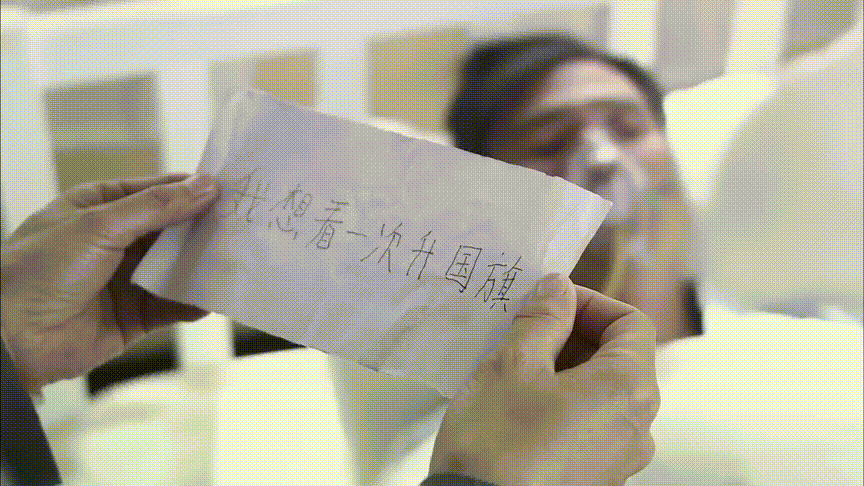 我想看一次升国旗